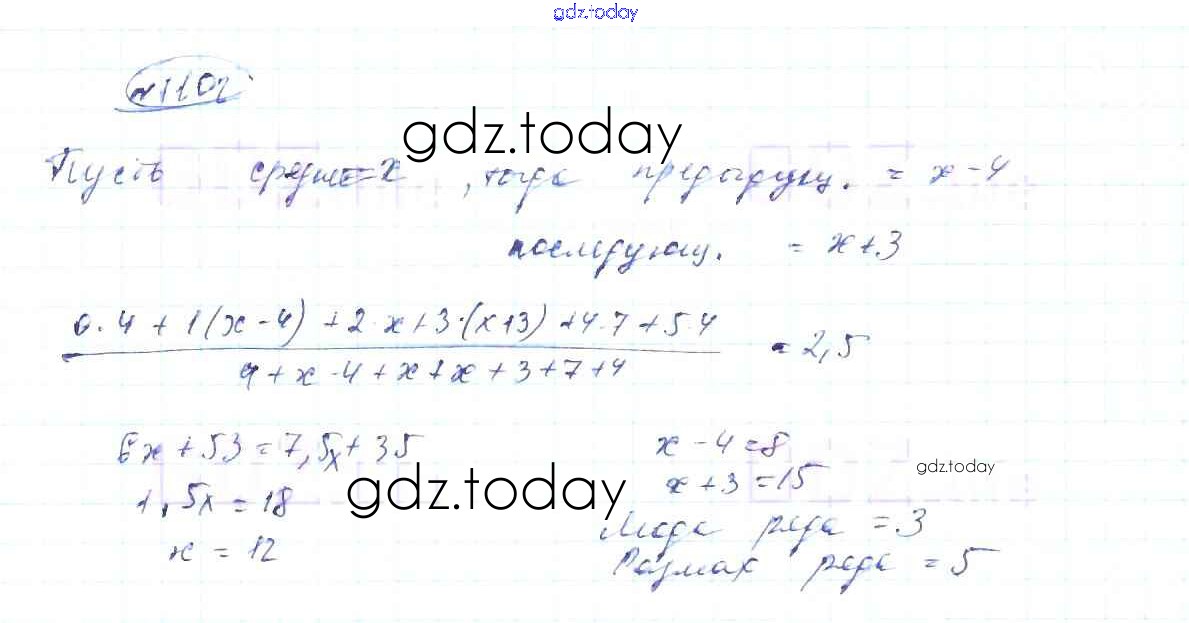 gdz.today
№1102
gdz.today
Пусть средне = x, тогда предыдущ. = x - 4
последующ. = x + 3
0·4 + 1(x - 4) + 2·x + 3·(x + 3) + 4·7 + 5·4
4 + x - 4 + x + x + 3 + 7 + 4
= 2,5
6x + 53 = 7,5x + 35
1,5x = 18
x = 12
gdz.today
x - 4 = 8
x + 3 = 15
gdz.today
Мода ряда = 3
Размах ряда = 5